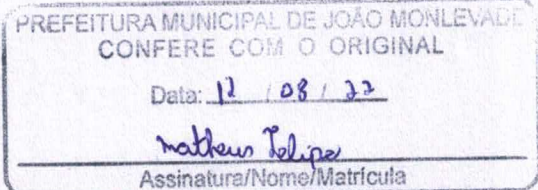 PREFEITURA MUNICIPAL DE JOÃO MONLEVADE
CONFERE COM O ORIGINAL
Data: 12 / 08 / 22
Matheus Felipe
Assinatura/Nome/Matrícula